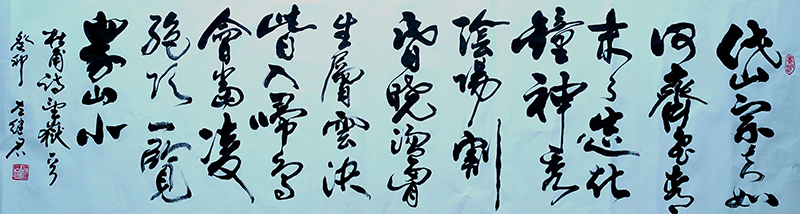 岱宗夫如
何齊魯青
未了造化
鐘神秀
陰陽割
昏曉盪胸
生層雲決
眥入歸鳥
會當凌
絕頂一覽
眾山小
杜甫詩望嶽
癸卯